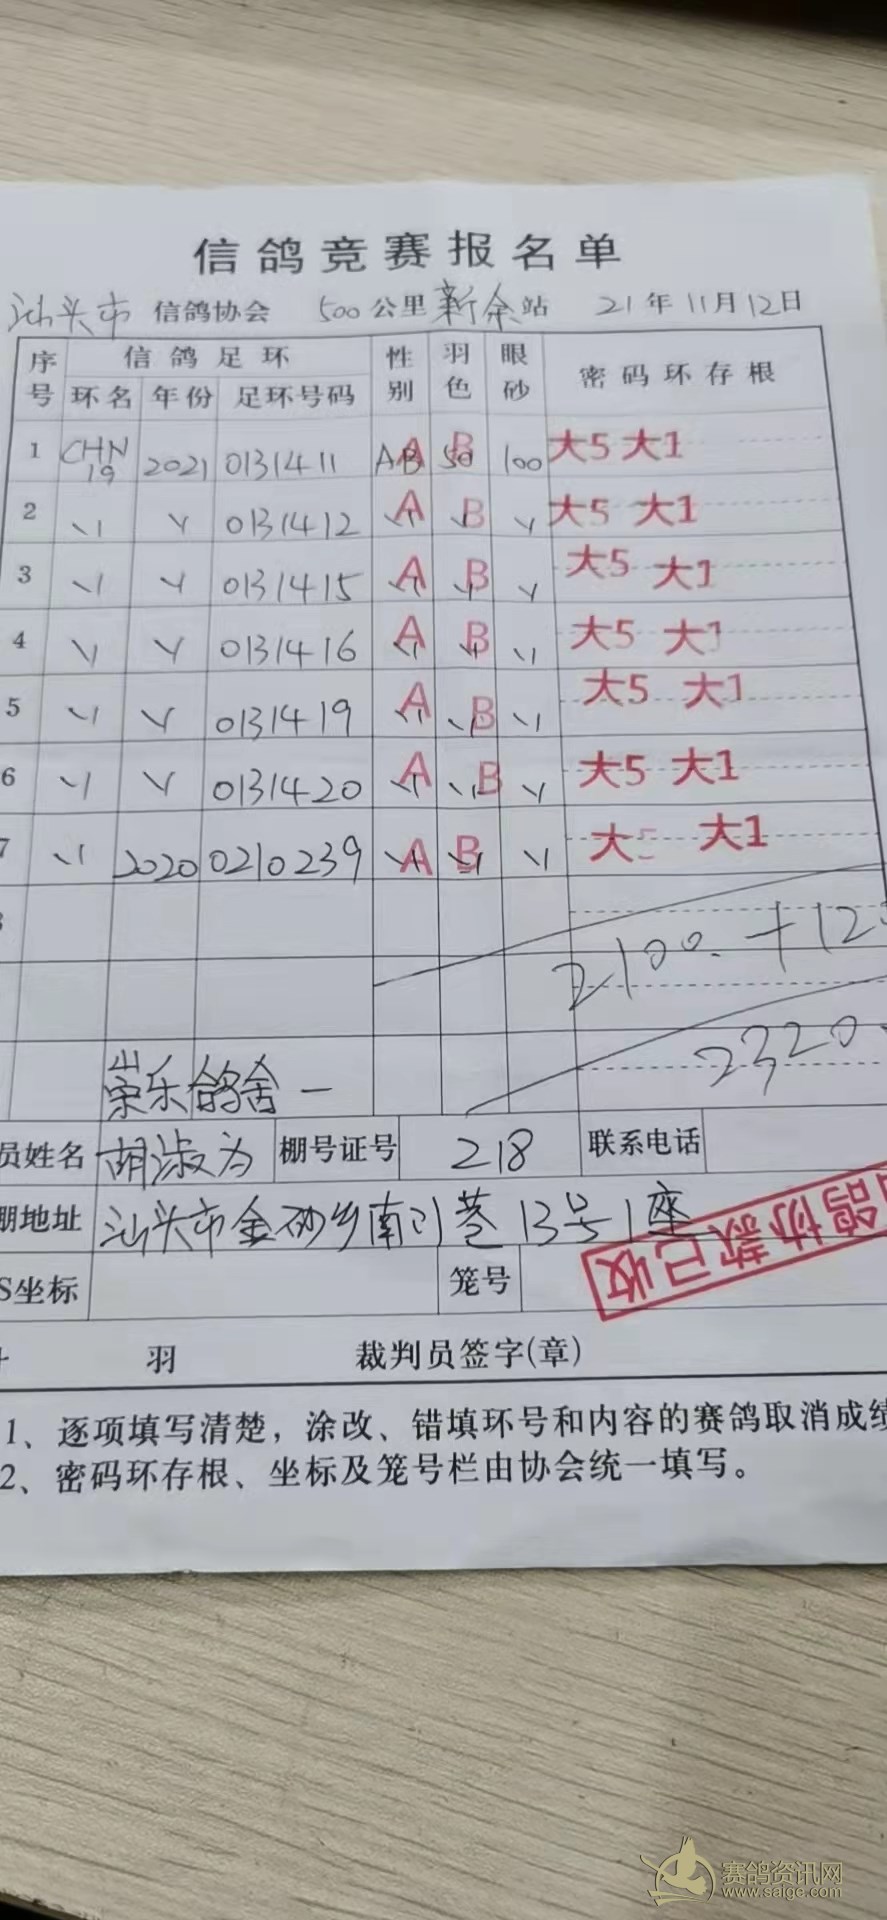 信鸽竞赛报名单
汕头市 信鸽协会 500公里 新余站 21年11月12日
序号 信鸽足环 性别 羽色 眼砂 密码环存根
环名 年份 足环号码
1 CHN 19 2021 0131411 AB A 50 B 100 大5 大1
2 0131412 A B 大5 大1
3 0131415 A B 大5 大1
4 0131416 A B 大5 大1
5 0131419 A B 大5 大1
6 0131420 A B 大5 大1
7 2020 0210239 A B 大5 大1
2100.+12
2320.
崇乐鸽舍一
员姓名 胡淑为 棚号证号 218 联系电话
棚地址 汕头市金砂乡南 巷13号1座
鸽协款已收
S坐标 笼号
羽 裁判员签字(章)
1、逐项填写清楚，涂改、错填环号和内容的赛鸽取消成绩
2、密码环存根、坐标及笼号栏由协会统一填写。
赛鸽资讯网
www.saige.com